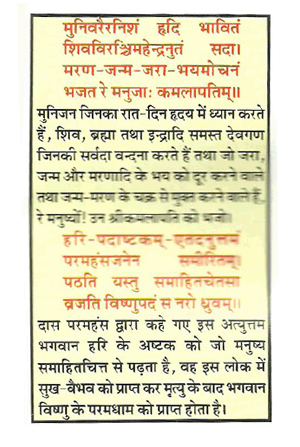 मुनिवरैरनिशं हृदि भावितं
शिवविरञ्चिमहेन्द्रनुतं सदा।
मरण-जन्म-जरा-भयमोचनं
भजत रे मनुजाः कमलापतिम्॥
मुनिजन जिनका रात-दिन हृदय में ध्यान करते
हैं, शिव, ब्रह्मा तथा इन्द्रादि समस्त देवगण
जिनकी सर्वदा वन्दना करते हैं तथा जो जरा,
जन्म और मरणादि के भय को दूर करने वाले
तथा जन्म-मरण के चक्र से मुक्त करने वाले हैं,
रे मनुष्यों! उन श्रीकमलापति को भजो।
हरि-पदाष्टकम्-एतदनुत्तमं
परमहंसजनेन समीरितम्।
पठति यस्तु समाहितचेतसा
व्रजति विष्णुपदं स नरो ध्रुवम्॥
दास परमहंस द्वारा कहे गए इस अत्युत्तम
भगवान हरि के अष्टक को जो मनुष्य
समाहितचित्त से पढ़ता है, वह इस लोक में
सुख-वैभव को प्राप्त कर मृत्यु के बाद भगवान
विष्णु के परमधाम को प्राप्त होता है।